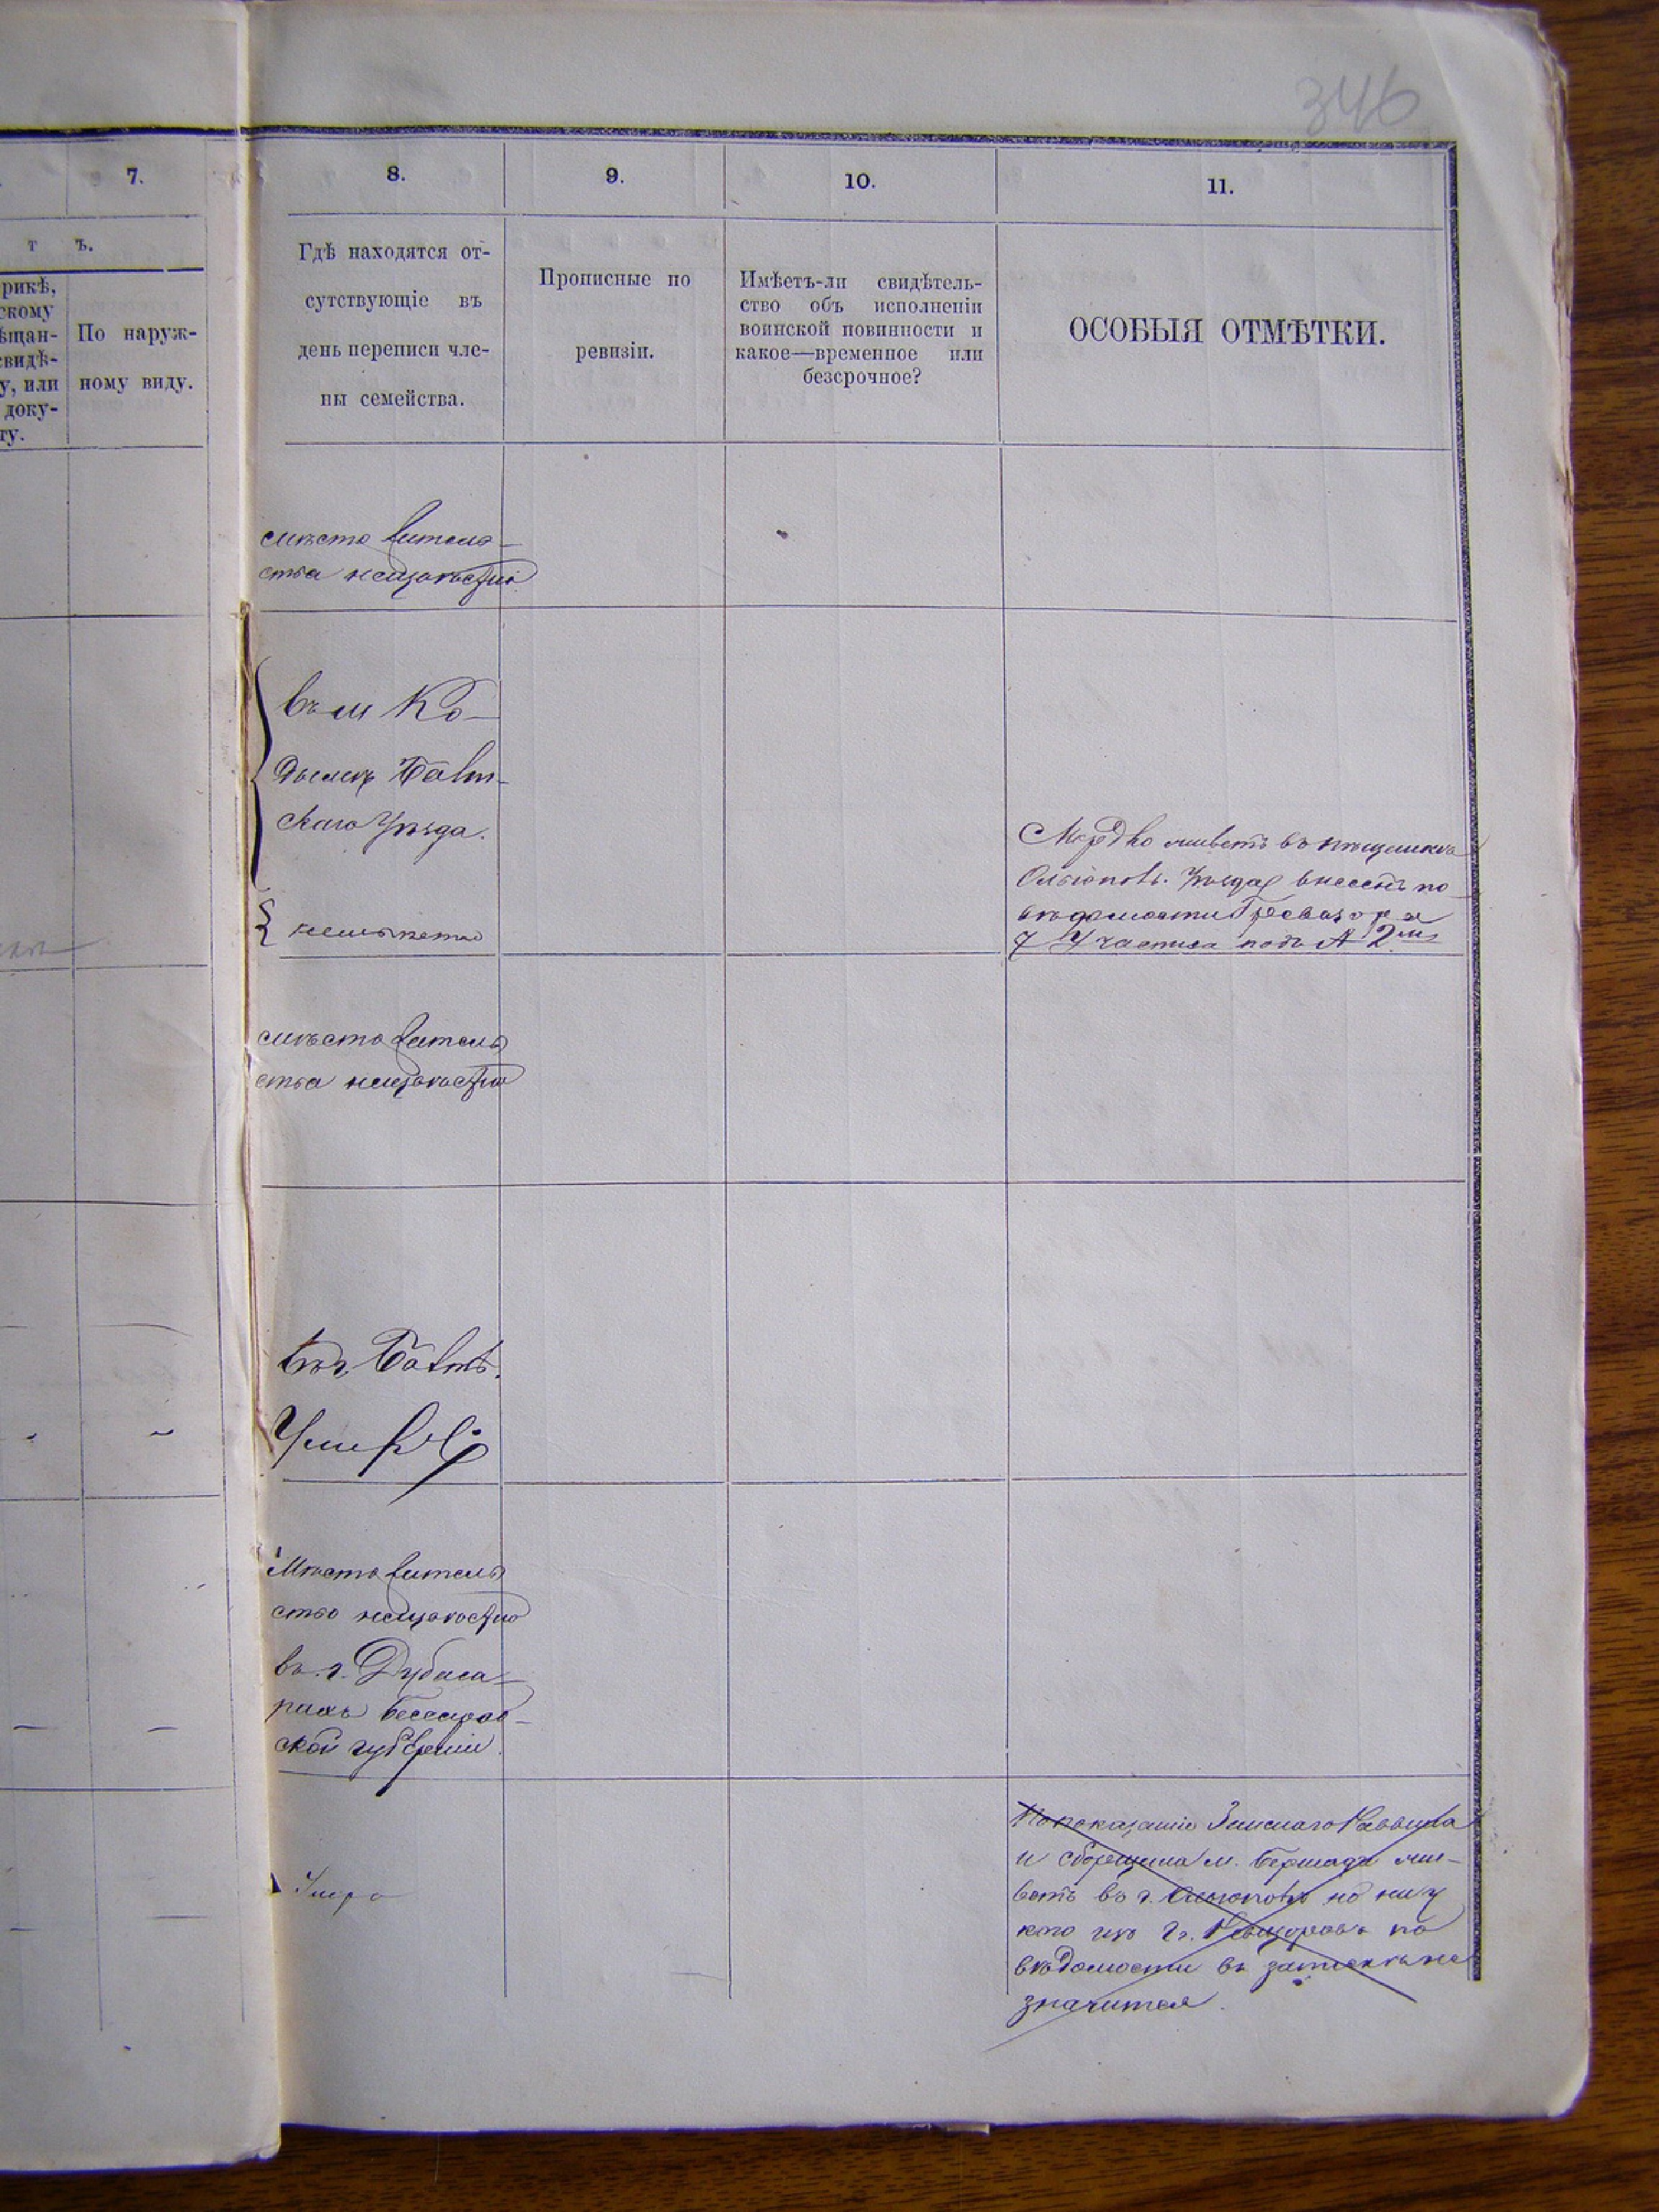 346
7.
8.
9.
10.
11.
т ъ.
рикѣ,
скому
ѣщан-
свидѣ-
у, или
доку-
ту.
По наруж-
ному виду.
Гдѣ находятся от-
сутствующіе въ
день переписи чле-
ны семейства.
Прописные по
ревизіи.
Имѣетъ-ли свидѣтель-
ство объ исполненіи
воинской повинности и
какое—временное или
безсрочное?
ОСОБЫЯ ОТМѢТКИ.
мѣсто житель-
ства неизвѣстно
въ м Ко-
дымѣ Балт-
скаго Уѣзда.
Мордко живетъ въ
Ольгопол. Уѣзда внесенъ по
вѣдомости Гревизора
4 участка подъ № 2мъ
неизвѣстно
мѣсто житель
ства неизвѣстно
въ г. Балтѣ.
Умеръ
Мѣсто житель
ство неизвѣстно
въ г. Дубоса-
рахъ Бессараб-
ской губерніи
Умеръ
По показанію Раввина
и сборщика м. Бершади жи-
ветъ въ г. Ольгополѣ но ни у
кого изъ Гг. Ревизоровъ по
вѣдомости въ запискѣ не
значится.